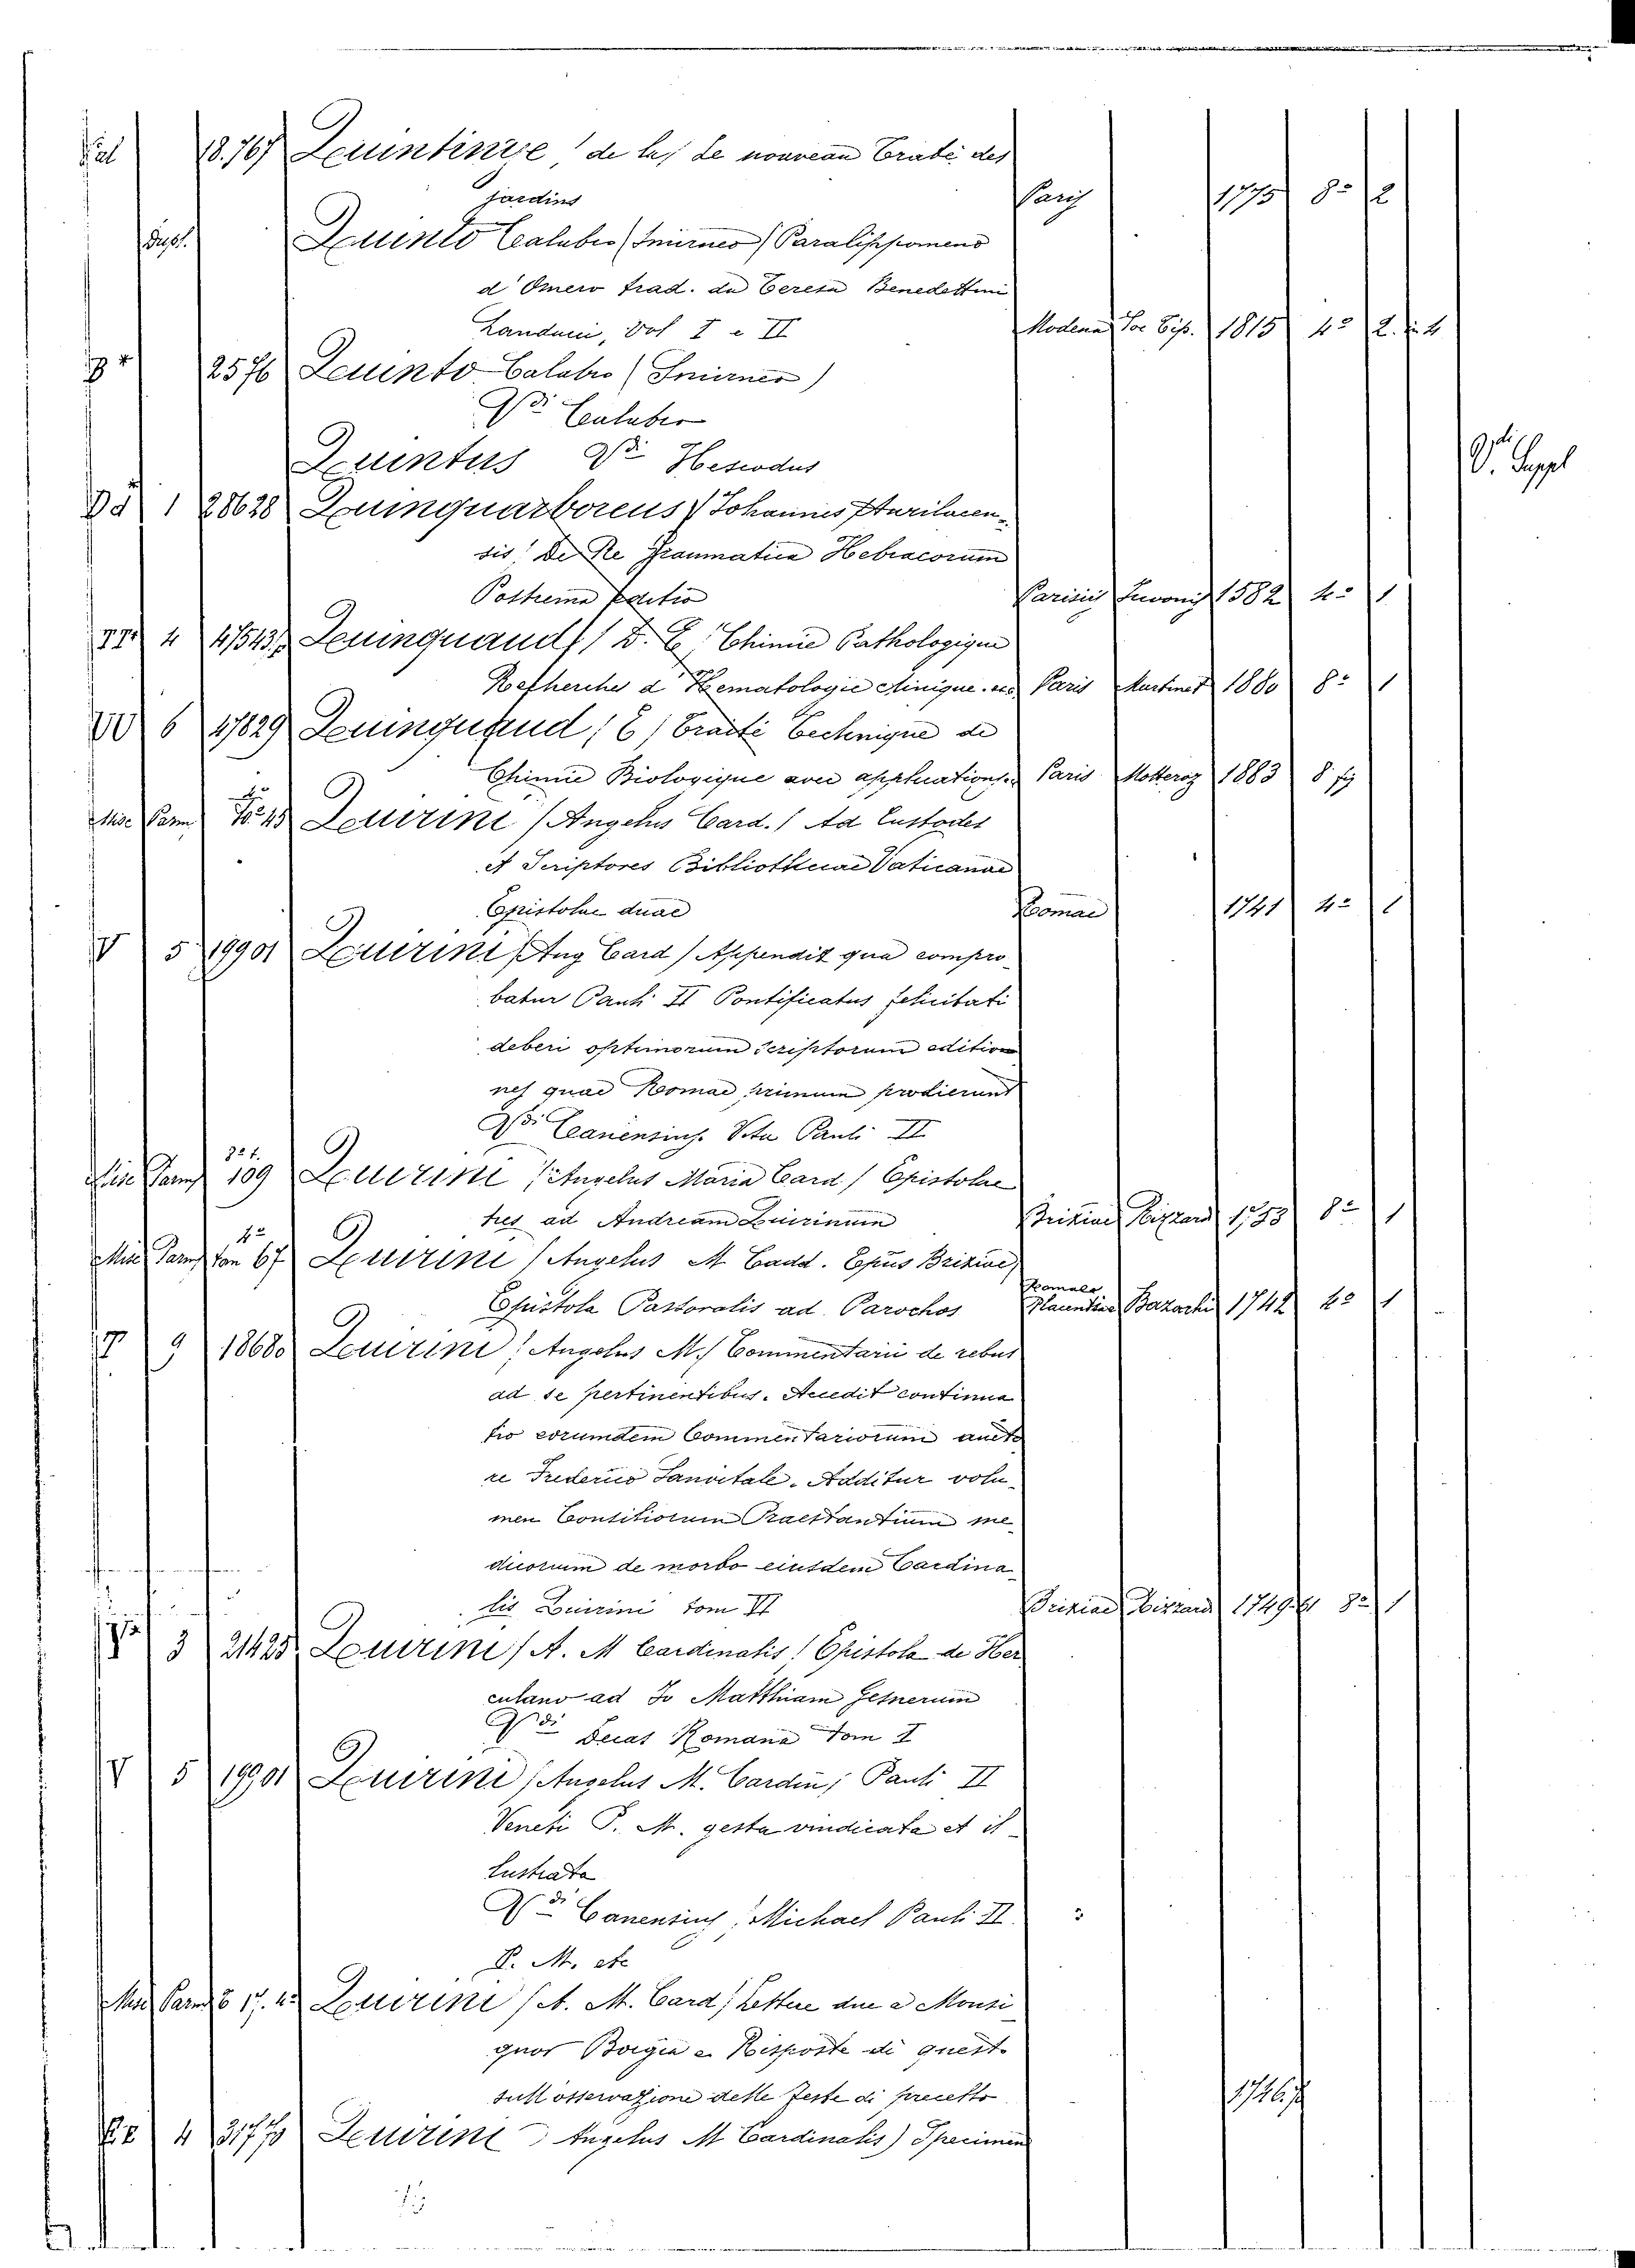 Pal 18.767 Quintinye (de la) Le nouveau Traité des
jardins Paris 1775 8º 2
Supl. Quinto Calabro (Smirneo) Paralippomeno
d'Omero trad. da Teresa Benedettini
Landucci, Vol I e II Modena Soc Tip. 1815 4º 2.
2576 Quinto Calabro (Smirneo)
Vdi Calaber
Quintus Vdi Hesiodus
Vdi Suppl
1 28628 Quinquarboreus (Johannes Aurilacen-
sis) De Re Grammatica Hebraeorum
Postrema Editio Parisiis Juvenis 1582 4º 1
4 47543 Quinquaud (D. E.) Chimie Pathologique
Recherches d'Hematologie clinique. Paris Martinet 1880 8º 1
6 47829 Quinquaud (E) Traité Technique de
Chimie Biologique avec applications. Paris Motteroz 1883 8º fig
Misc Parm 4º To 43 Quirini (Angelus Card.) Ad Custodes
et Scriptores Bibliothecae Vaticanae
Epistolae duae Romae 1741 4º 1
V 5 19901 Quirini (Ang Card) Appendix qua compro-
batur Pauli II Pontificatus felicitati
deberi optimorum scriptorum editio
nes quae Romae primum prodierunt
Vdi Canensius. Vita Pauli II
Misc Parm 8º t. 109 Quirini (Angelus Maria Card) Epistolae
tres ad Andream Quirinum Brixiae Rizzardi 1753 8º 1
Misc Parm 4º Tom 67 Quirini (Angelus M Card. Epus Brixiae)
Epistola Pastoralis ad Parochos Romae Placentiae Bazachi 1742 4º 1
9 18680 Quirini (Angelus M.) Commentarii de rebus
ad se pertinentibus. Accedit continua
tio eorumdem Commentariorum aucto
re Frederico Sanvitale. Additur volu-
men Consiliorum Praestantium me-
dicorum de morbo eiusdem Cardina-
lis Quirini tom VI Brixiae Rizzardi 1749.61 8º 1
3 21425 Quirini (A. M Cardinalis) Epistola de Her
culano ad Jo Matthiam Gesnerum
Vdi Decas Romana Tom I
V 5 19901 Quirini (Angelus M. Cardin) Pauli II
Veneti P. M. gesta vindicata et il-
lustrata
Vdi Canensius, Michael Pauli II.
P. M. etc
Misc Parm 17. 4º Quirini (A. M. Card) Lettere due a Monsi
gnor Borgia e Risposte di questo
sull'osservazione delle feste di precetto 1746.7
4 31770 Quirini (Angelus M Cardinalis) Specimen